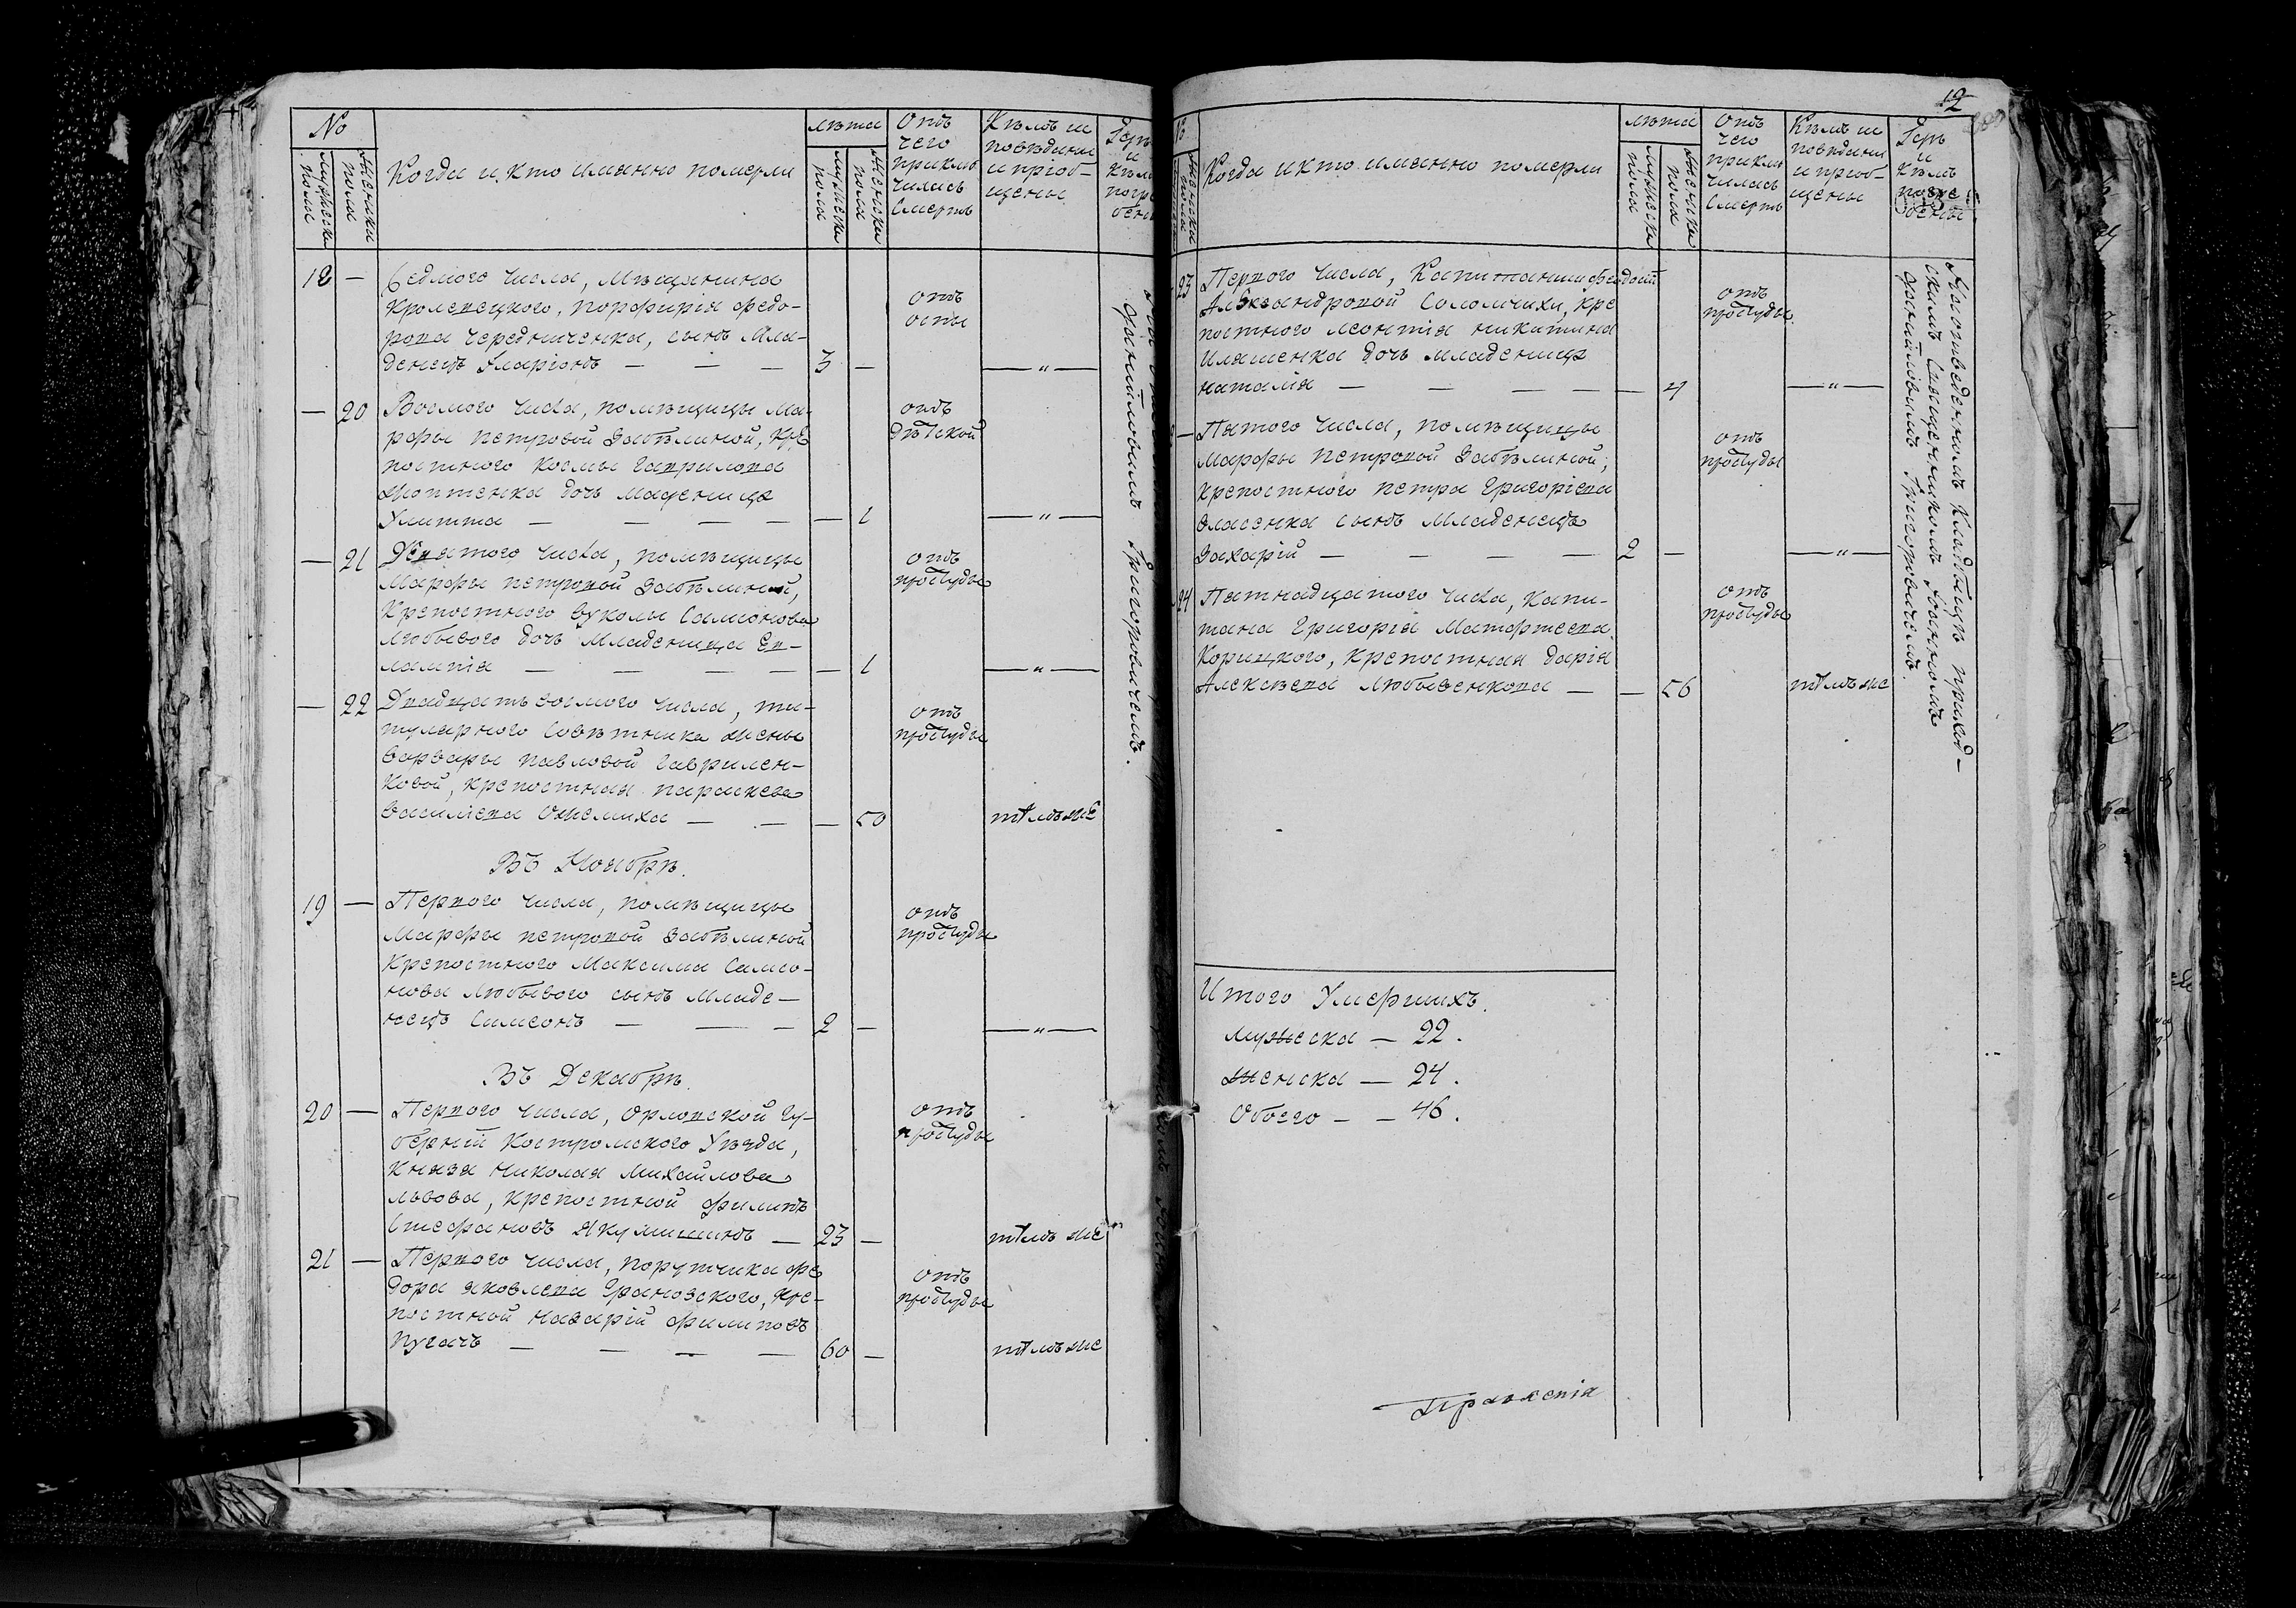 №
мужеска пола
женска пола
Когда и кто именно померли
лѣта
мужеска пола
женска пола
Отъ чего приклю-
чилась
смерть
Кѣмъ и-
повѣданы
и пріоб-
щены
Гдѣ
и
Кѣмъ
погре
бены
18 —
Седмого числа, мѣщанина
Кролевецкого, Порфирія Федо-
рова Чередниченка, сынъ мла-
денецъ Иларіонъ — — — 3 —
отъ
оспы
— „ —
— 20
Восмого числа, помѣщицы Ма-
рфы Петровой Забѣлиной, кре
постного Космы Гаврилова
дочь младеница
Улитта — — — — — 1
отъ
дѣтской
— „ —
— 21
Девятого числа, помѣщицы
Марфы Петровой Забѣлиной,
крепостного Вуколы Самсонова
Любывого дочь младеница Ев-
лампія — — — — 1
отъ
простуды
— „ —
— 22
Двадцать восмого числа, ти-
тулярного Совѣтника жены
Варвары Павловой Гаврилен-
ковой, крепостная Параскева
Василіева — — — 50
отъ
простуды
тѣмъ же
Въ Ноябрѣ.
19 —
Первого числа, помѣщицы
Марфы Петровой Забѣлиной
крепостного Максима Самсо-
нова Любывого сынъ младе-
нецъ Симеонъ — — — 2 —
отъ
простуды
— „ —
Въ Декабрѣ.
20 —
Первого числа, Орловской гу-
берніи Костромского уѣзда,
Князя Николая Михайлова
Львова, крепостной Филипъ
Стефановъ Якунинъ — 23 —
отъ
простуды
тѣмъ же
21 —
Первого числа, порутчика Фе
дора Яковлева Грановского, кре-
постной Назарій Филиповъ
Пугачъ — — — — 60 —
отъ
простуды
тѣмъ же
Даниіловымъ Григоровичемъ.
12
№
женска пола
Когда и кто именно померли
лѣта
мужеска пола
женска пола
Отъ
чего
приклю
чилась
смерть
Кѣмъ и
повѣданы
и пріоб-
щены
Гдѣ
и
Кѣмъ
погре
бены
— 23
Первого числа, Капитанши Феодосіи
Александровой Соломчихи, кре
постного Леонтія Никитина
Иляшенка дочь младеница
Наталія — — — — — 4
отъ
простуды
— „ —
—
Пятого числа, помѣщицы
Марфы Петровой Забѣлиной,
крепостного Петра Григоріева
Власенка сынъ младенецъ
Захарій — — — — 2 —
отъ
простуды
— „ —
24
Пятнадцатого числа, Капи-
тана Григорія Матфеева
Корицкого, крепостная Дарія
Алексѣева Любывенкова — — 56
отъ
простуды
тѣмъ же
На отведенномъ кладбищѣ приход-
скимъ священникомъ Іоанномъ
Даниіловымъ Григоровичемъ.
Итого умершихъ.
мужеска — 22.
женска — 24.
Обоего — — 46.
Правленія